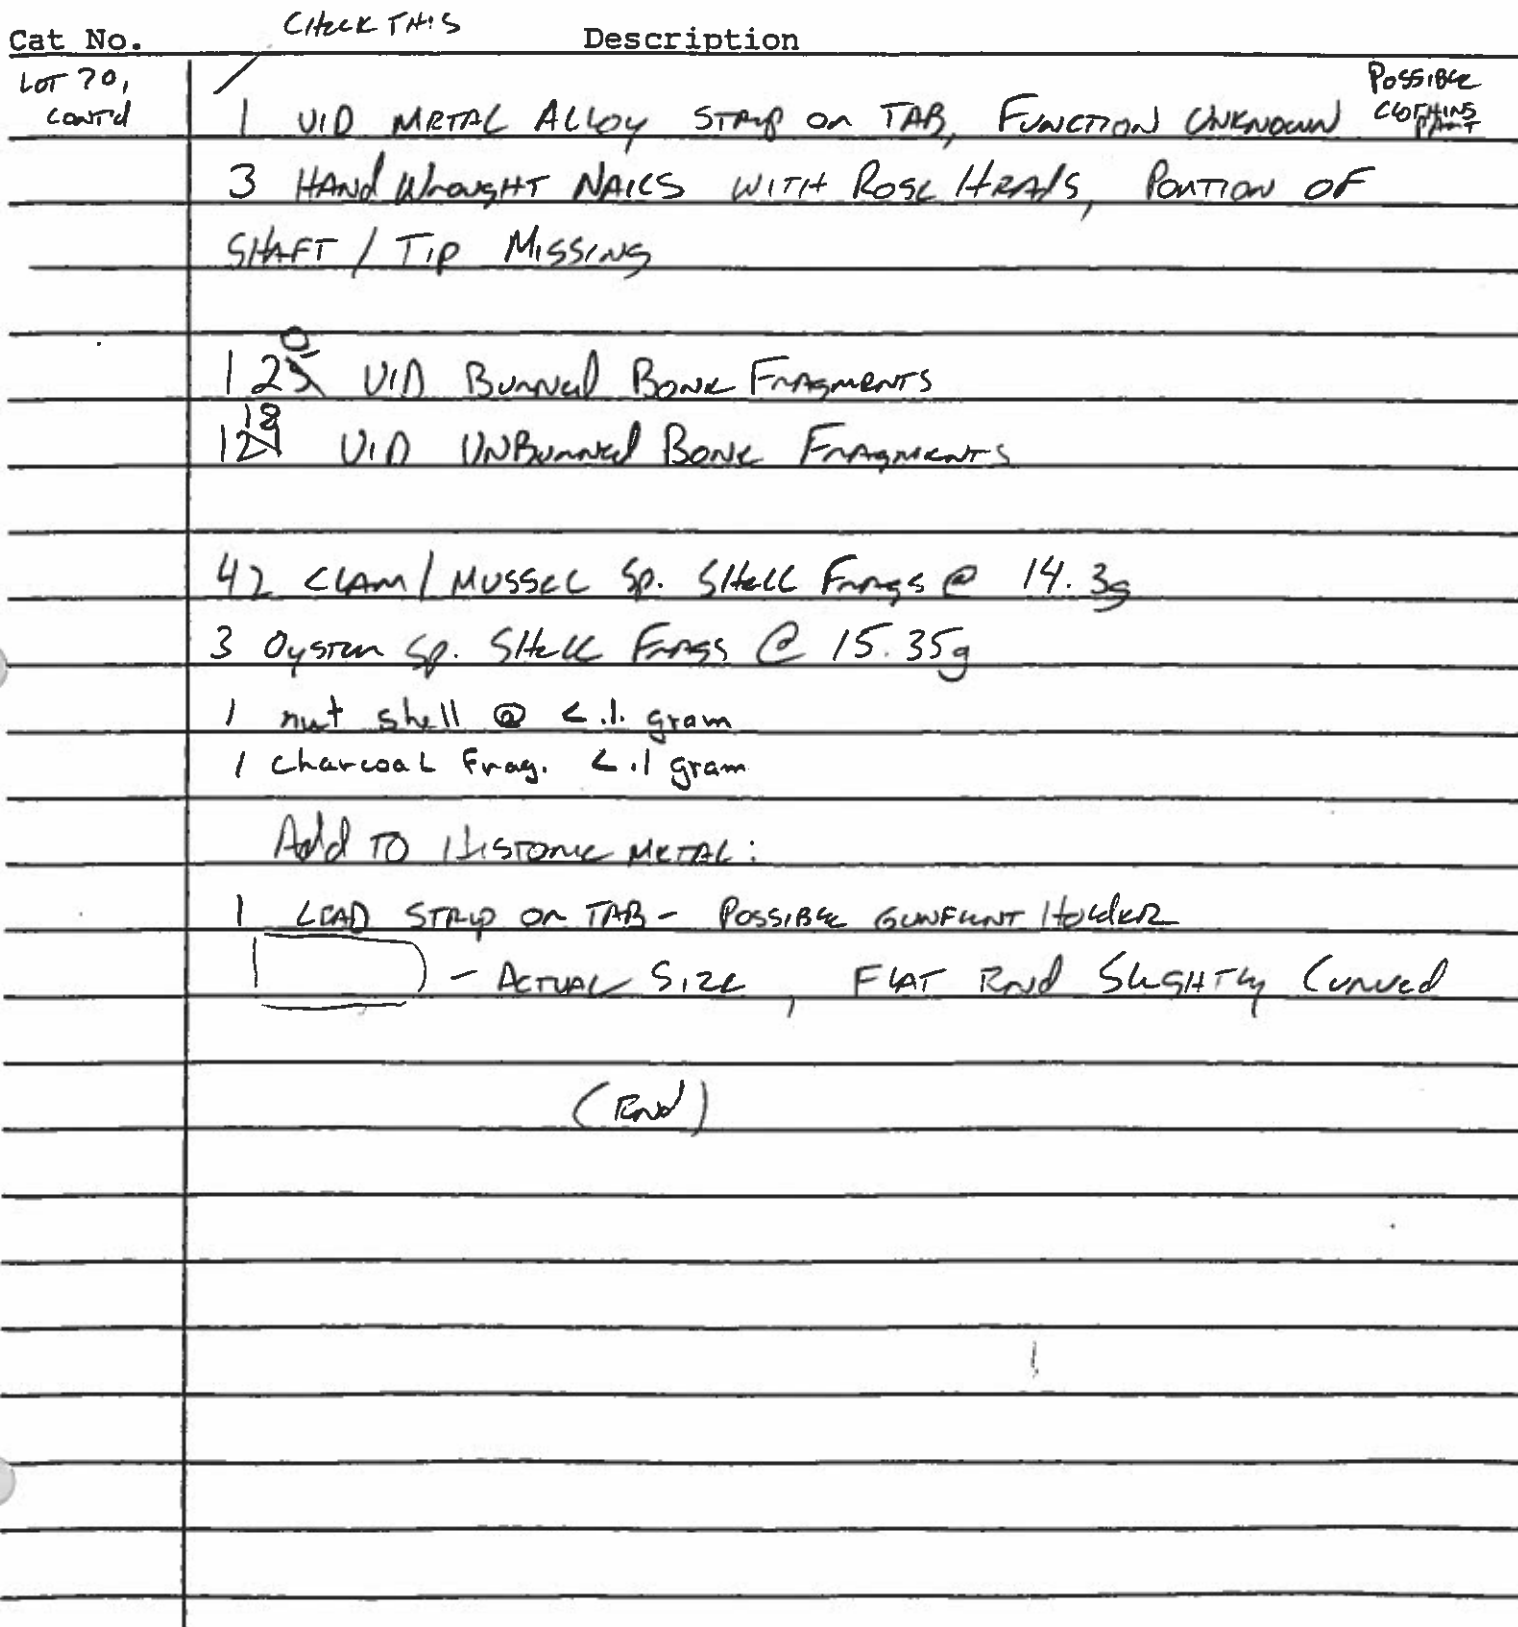 CHECK THIS
Cat No. Description
LOT 70, CONT'd
POSSIBLE CLOTHING PART
1 UID METAL ALLOY STRIP OR TAB, FUNCTION UNKNOWN
3 HAND WROUGHT NAILS WITH ROSE HEADS, PORTION OF
SHAFT / TIP MISSING
0
125 UID BURNED BONE FRAGMENTS
18
124 UID UNBURNED BONE FRAGMENTS
42 CLAM / MUSSEL SP. SHELL FRAGS @ 14.3g
3 OYSTER SP. SHELL FRAGS @ 15.35g
1 nut shell @ < .1. gram
1 charcoal Frag. < .1 gram
Add TO HISTORIC METAL:
1 LEAD STRIP OR TAB - POSSIBLE GUNFLINT HOLDER
- ACTUAL SIZE, FLAT END SLIGHTLY CURVED
(END)